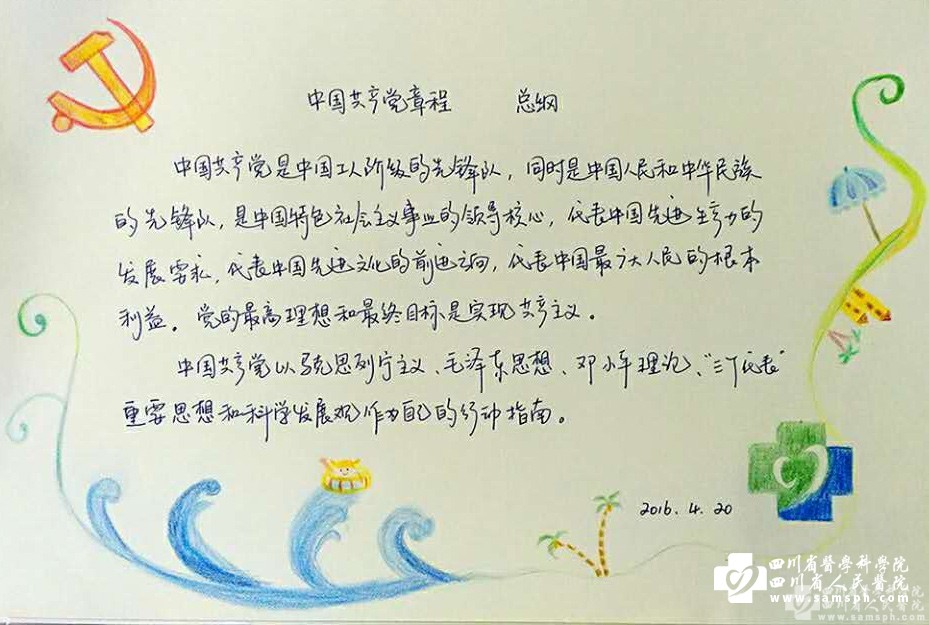 中国共产党章程 总纲
中国共产党是中国工人阶级的先锋队，同时是中国人民和中华民族
的先锋队，是中国特色社会主义事业的领导核心，代表中国先进生产力的
发展要求，代表中国先进文化的前进方向，代表中国最广大人民的根本
利益。党的最高理想和最终目标是实现共产主义。
中国共产党以马克思列宁主义、毛泽东思想、邓小平理论、“三个代表”
重要思想和科学发展观作为自己的行动指南。
2016.4.20
四川省醫學科學院
四川省人民醫院
www.samsph.com
四川省人民醫院
www.samsph.com